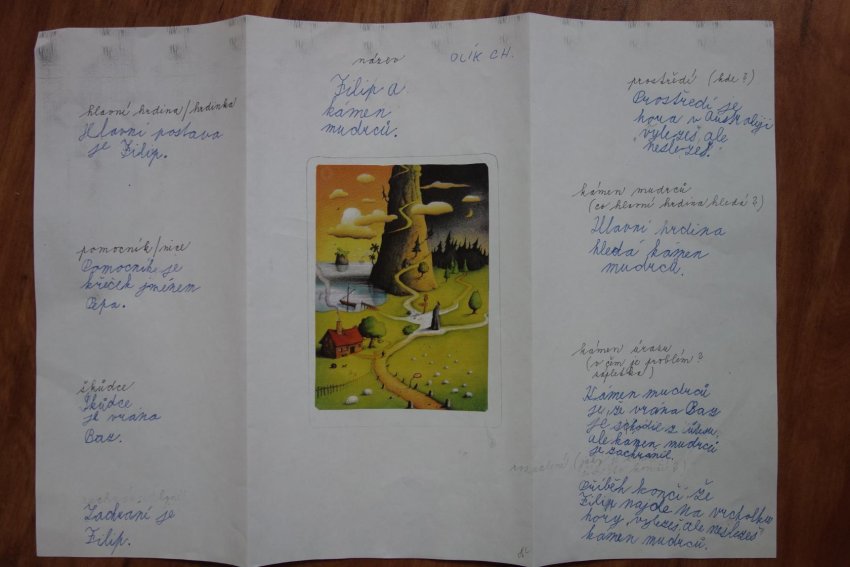 název
OLÍK CH.
Filip a
kámen
mudrců.
hlavní hrdina/hrdinka
Hlavní postava
je Filip.
pomocník/nice
Pomocník je
křeček jménem
Pepa.
škůdce
Škůdce
je vrána
Baz.
Zachraní je
Filip.
prostředí (kde?)
Prostředí je
hora v Australiji
"vylezeš ale
neslezeš."
kámen mudrců
(co hlavní hrdina hledá?)
Hlavní hrdina
hledá kámen
mudrců.
kámen úrazu
(v čem je problém?
zápletka)
Kámen mudrců
je že vrána Baz
je schodil z útesu,
ale kámen mudrců
je zachránil.
Příběh končí že
Filip najde na vrcholku
hory "vylezeš ale neslezeš"
kámen mudrců.